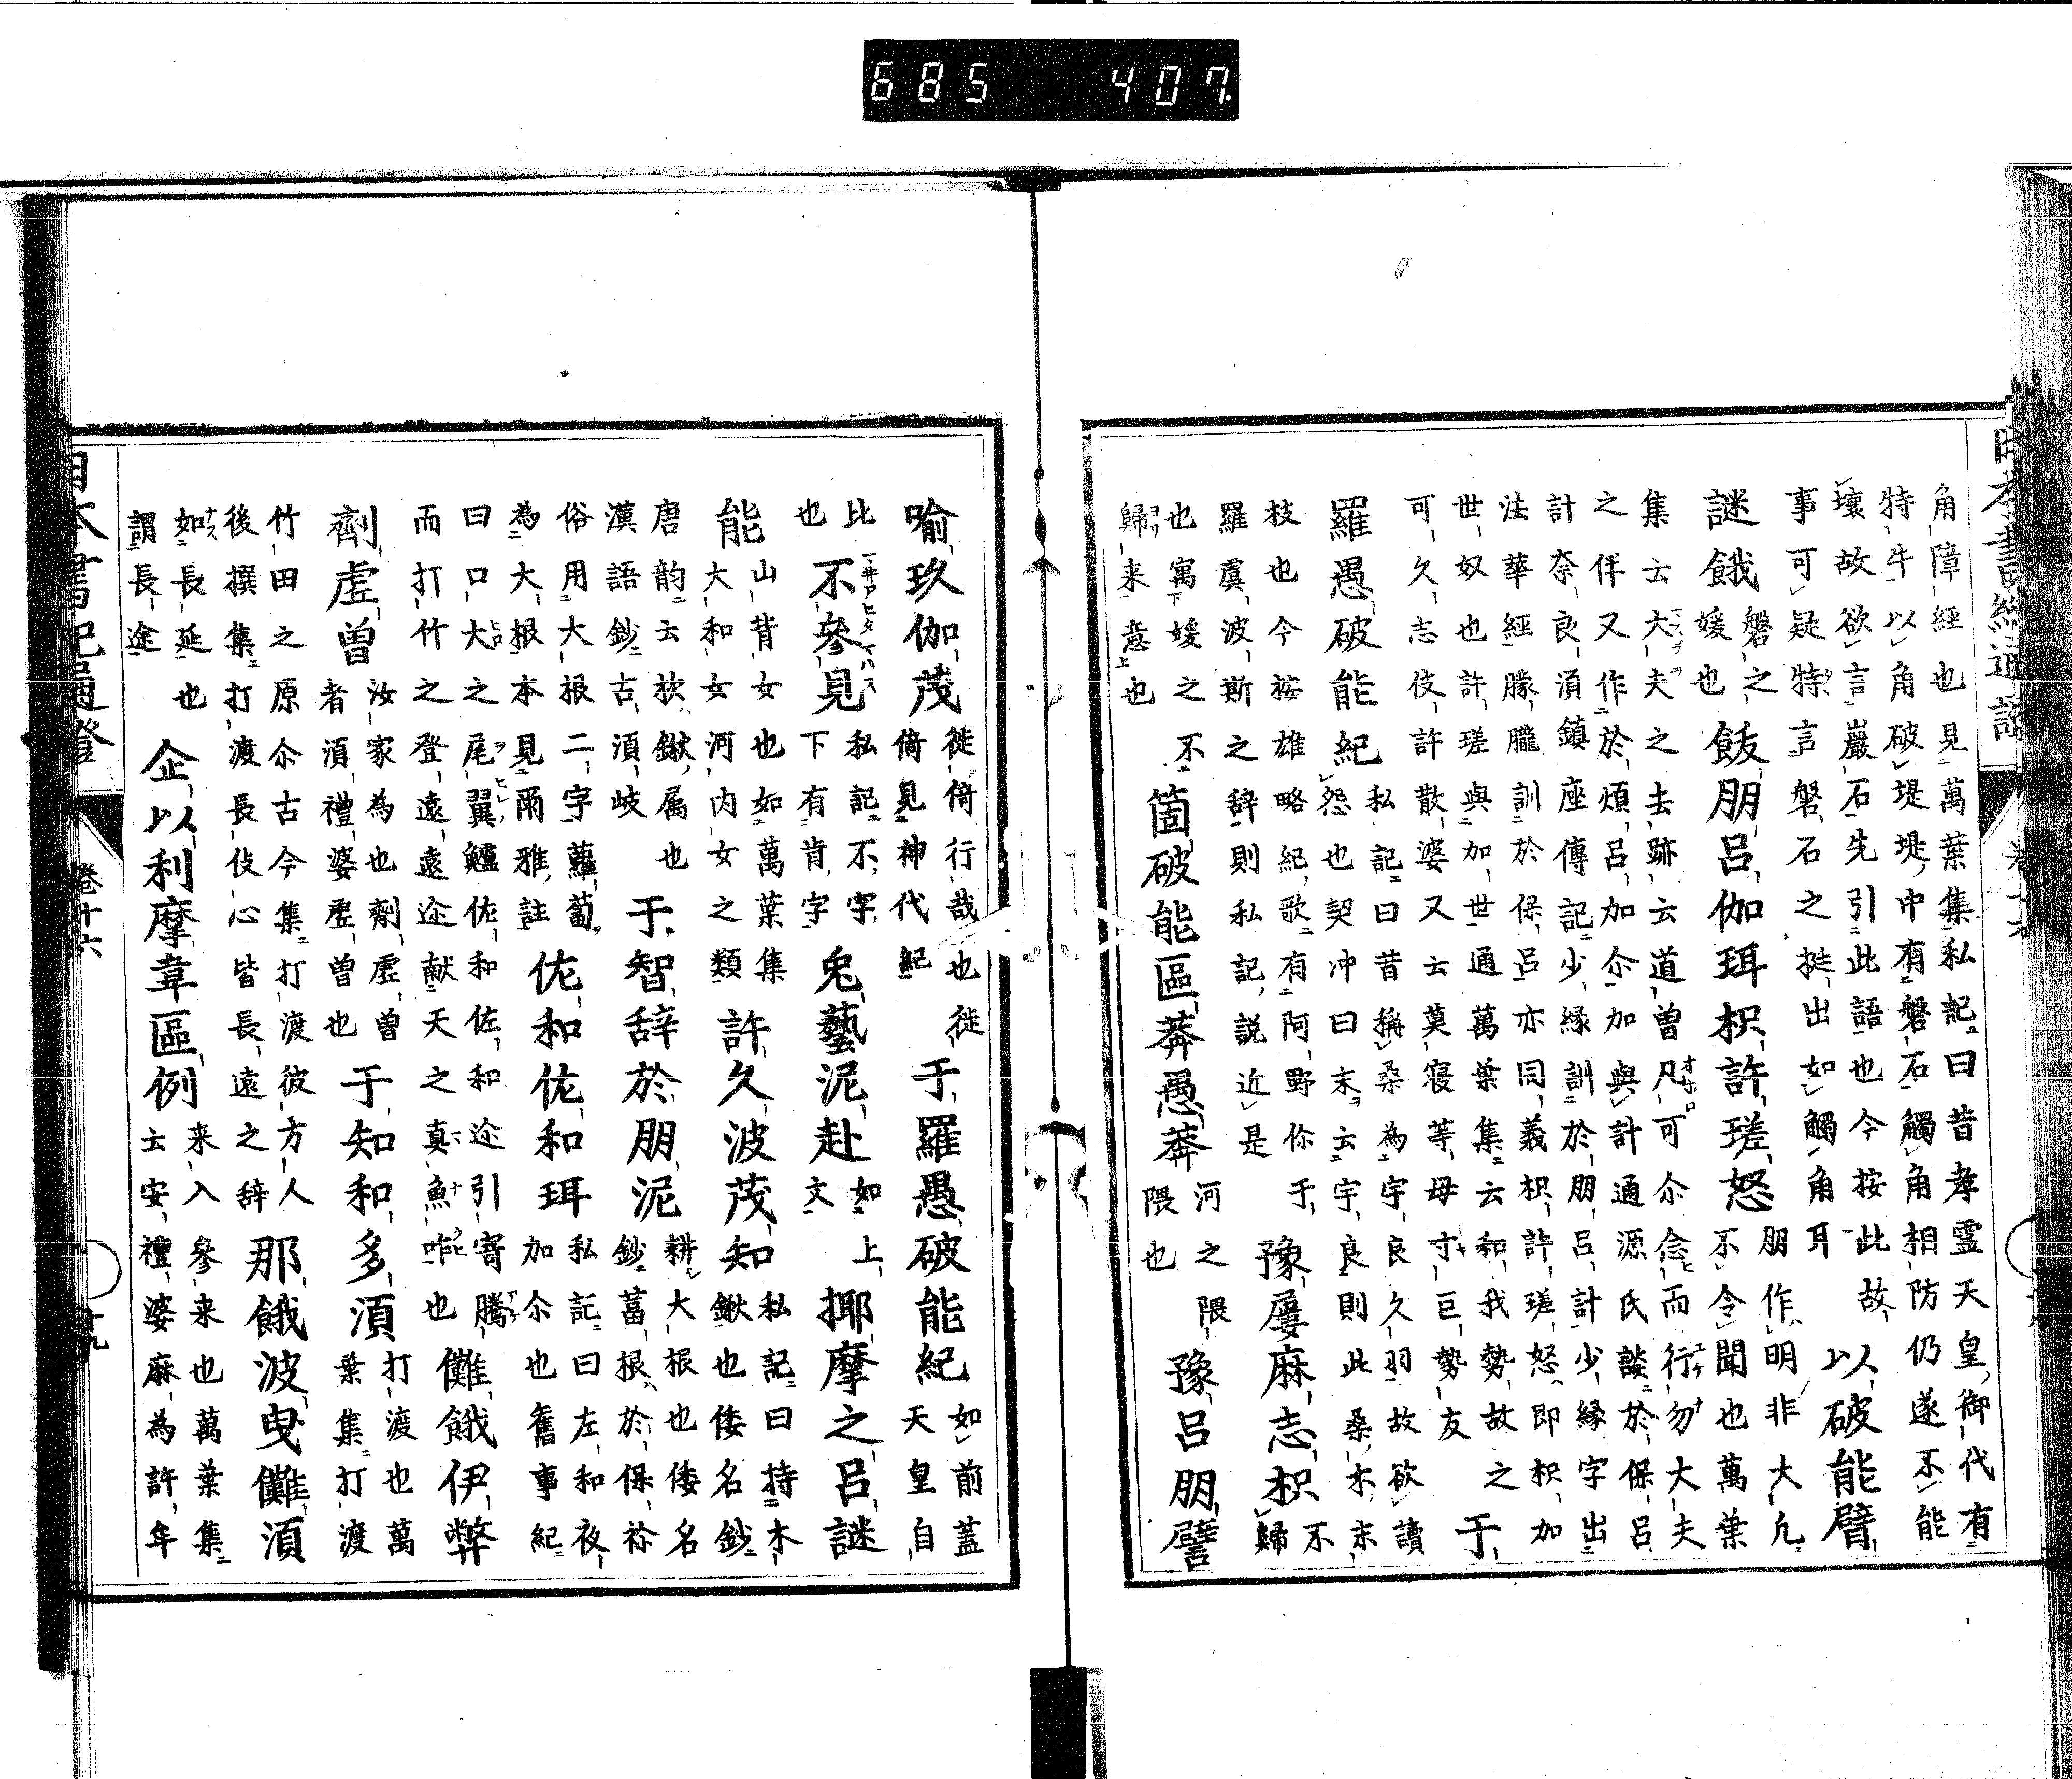 685 407
角障經也見萬葉集私記曰昔孝靈天皇御代有
特牛以角破堤堤中有磐石觸角相防仍遂不能
壞故欲言巖石先引此語也今按此故
以破能臂
事可疑特言磐石之挺出如觸角耳
謎餓
磐之
媛也
飯朋呂伽珥枳許瑳怒
朋作明非大凢
不令聞也萬葉
集云大夫之去跡云道曽凡可尒念而行勿大夫
之伴又作於煩呂加尒加與計通源氏談於保呂
計奈良湏鎮座傳記少縁訓於朋呂計少縁字出
法華經朦朧訓於保呂亦同義枳許瑳怒即枳加
世奴也許瑳與加世通萬葉集云和我勢故之
于
可久志伎許散婆又云莫寝等母寸巨勢友
羅愚破能紀
私記曰昔稱桑為宇良久羽故欲讀
怨也契沖曰末云宇良則此桑木末不
枝也今按雄略紀歌有阿野你于
豫屢麻志枳
歸
羅虞波斯之辞則私記説近是
也寓媛之不
歸来意也
箇破能區莽愚莽
河之隈
隈也
豫呂朋譬
喻玖伽茂
徙倚行哉也徙
倚見神代紀
于羅愚破能紀
如前蓋
天皇自
比
也
不參見
私記不字
下有肯字
兔藝泥赴
如上
文
揶摩之呂謎
能
山背女也如萬葉集
大和女河内女之類
許久波茂知
私記曰持木
鍬也倭名鈔
唐韵云㰌鍬属也
漢語鈔古湏岐
于智辞於朋泥
耕大根也倭名
鈔葍根於保祢
俗用大根二字蘿蔔
為大根本見爾雅註
佐和佐和珥
私記曰左和夜
加尒也舊事紀
曰口大之尾翼鱸佐和佐和迩引寄騰
而打竹之登遠遠迩献天之真魚咋也
儺餓伊弊
劑虚曽
汝家為也劑虚曽
者湏禮婆虚曽也
于知和多湏
打渡也萬
葉集打渡
竹田之原尒古今集打渡彼方人
後撰集打渡長伎心皆長遠之辞
那餓波曳儺湏
如長延也
謂長途
企以利摩韋區例
来入參来也萬葉集
云安禮婆麻為許年
日本書紀通證
卷十六
十九